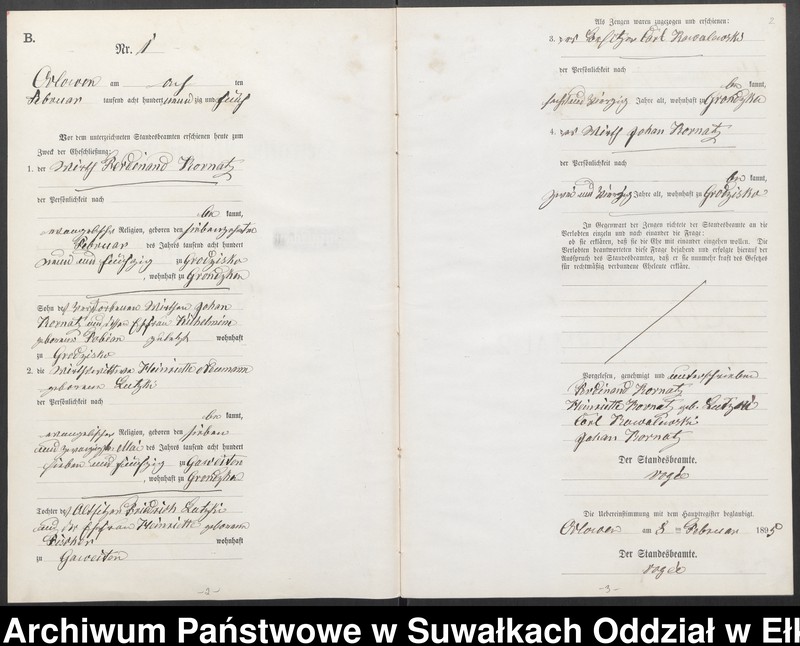 B.
Nr. 1
Orlowen am acht ten
Februar tausend acht hundert neunzig und fünf
Vor dem unterzeichneten Standesbeamten erschienen heute zum
Zweck der Eheschließung:
1. der Wirth Ferdinand Kornatz
der Persönlichkeit nach
be kannt,
evangelischer Religion, geboren den siebenzehnten
Februar des Jahres tausend acht hundert
neun und fünfzig zu Grodzisko
, wohnhaft zu Grondzken
Sohn des verstorbenen Wirthen Johan
Kornatz und dessen Ehefrau Wilhelmine
geborene zuletzt wohnhaft
zu Grodzisko
2. die Wirthswittwe Heinriette Neumann
geborene Lutzki
der Persönlichkeit nach
be kannt,
evangelischer Religion, geboren den sieben
und zwanzigsten Mai des Jahres tausend acht hundert
sieben und fünfzig zu Gaweiten
, wohnhaft zu Grondzken
Tochter des Altsitzer Friedrich Lutzki
und der Ehefrau Heinriette geborene
Fischer wohnhaft
zu Gaweiten
-2-
2
Als Zeugen waren zugezogen und erschienen:
3. der Besitzer Carl Kowalewski
der Persönlichkeit nach
be kannt,
sechs und vierzig Jahre alt, wohnhaft zu Grondzken
4. der Wirth Johan Kornatz
der Persönlichkeit nach
be kannt,
zwei und vierzig Jahre alt, wohnhaft zu Grodzisko
In Gegenwart der Zeugen richtete der Standesbeamte an die
Verlobten einzeln und nach einander die Frage:
ob sie erklären, daß sie die Ehe mit einander eingehen wollen. Die
Verlobten beantworteten diese Frage bejahend und erfolgte hierauf der
Ausspruch des Standesbeamten, daß er sie nunmehr kraft des Gesetzes
für rechtmäßig verbundene Eheleute erkläre.
Vorgelesen, genehmigt und unterschrieben
Ferdinand Kornatz
Heinriette Kornatz geb. Lutzki
Carl Kowalewski
Johan Kornatz
Der Standesbeamte.
Die Uebereinstimmung mit dem Hauptregister beglaubigt.
Orlowen am 8 ten Februar 1895
Der Standesbeamte.
-3-
Archiwum Państwowe w Suwałkach Oddział w Ełk